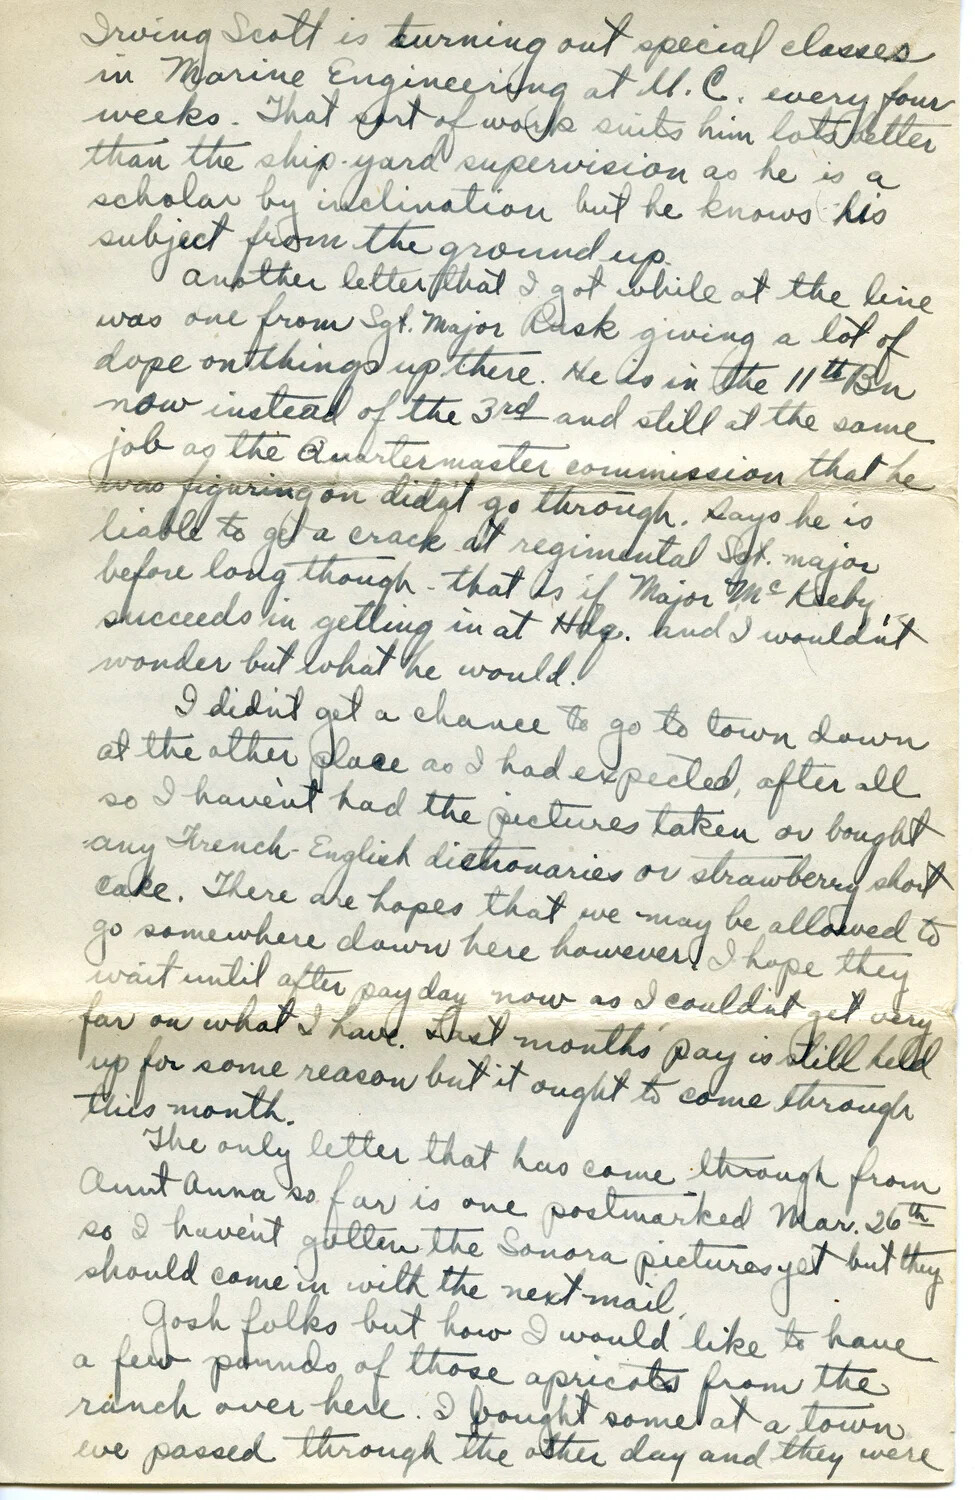 Irving Scott is turning out special classes
in Marine Engineering at U. C. every four
weeks. That sort of work suits him lots better
than the ship-yard supervision as he is a
scholar by inclination but he knows his
subject from the ground up.
Another letter that I got while at the line
was one from Sgt. Major Rusk giving a lot of
dope on things up there. He is in the 11th Bn
now instead of the 3rd and still at the same
job as the Quartermaster commission that he
was figuring on didn't go through. Says he is
liable to get a crack at regimental Sgt. major
before long though - that is if Major
succeeds in getting in at Hdq. and I wouldn't
wonder but what he would.
I didn't get a chance to go to town down
at the other place as I had expected, after all
so I haven't had the pictures taken or bought
any French-English dictionaries or strawberry short
cake. There are hopes that we may be allowed to
go somewhere down here however. I hope they
wait until after pay day now as I couldn't get very
far on what I have. Last months' pay is still held
up for some reason but it ought to come through
this month.
The only letter that has come through from
Aunt Anna so far is one postmarked Mar. 26th
so I haven't gotten the Sonora pictures yet but they
should come in with the next mail.
Gosh folks but how I would like to have
a few pounds of those apricots from the
ranch over here. I bought some at a town
we passed through the other day and they were